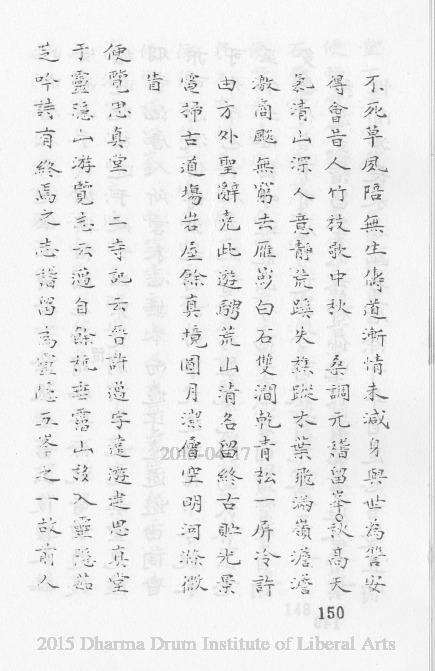 不死草夙陪無生儔道漸情未減身與世為讐安
得會昔人竹枝歌中秋　桑調元稽留峯秋高天
氣清山深人意靜荒蹊失旅蹤木葉飛滿嶺澹澹
激商飈無窮去雁影白石雙澗乾青松一屏冷許
由方外聖辭堯此遊騁荒山猜名留終古貯光景
窅掃古道場岩屋餘真境圓月潔僧空明河滌微
眚
便覽思真堂　二寺記云晉許邁字遠遊建思真堂
于靈隱山游覽志云邁自餘杭靈山移入靈隱茹
芝吟詩有終焉之志稽留為靈隱五峯之一故前人
150
2015-04-17
2015 Dharma Drum Institute of Liberal Arts